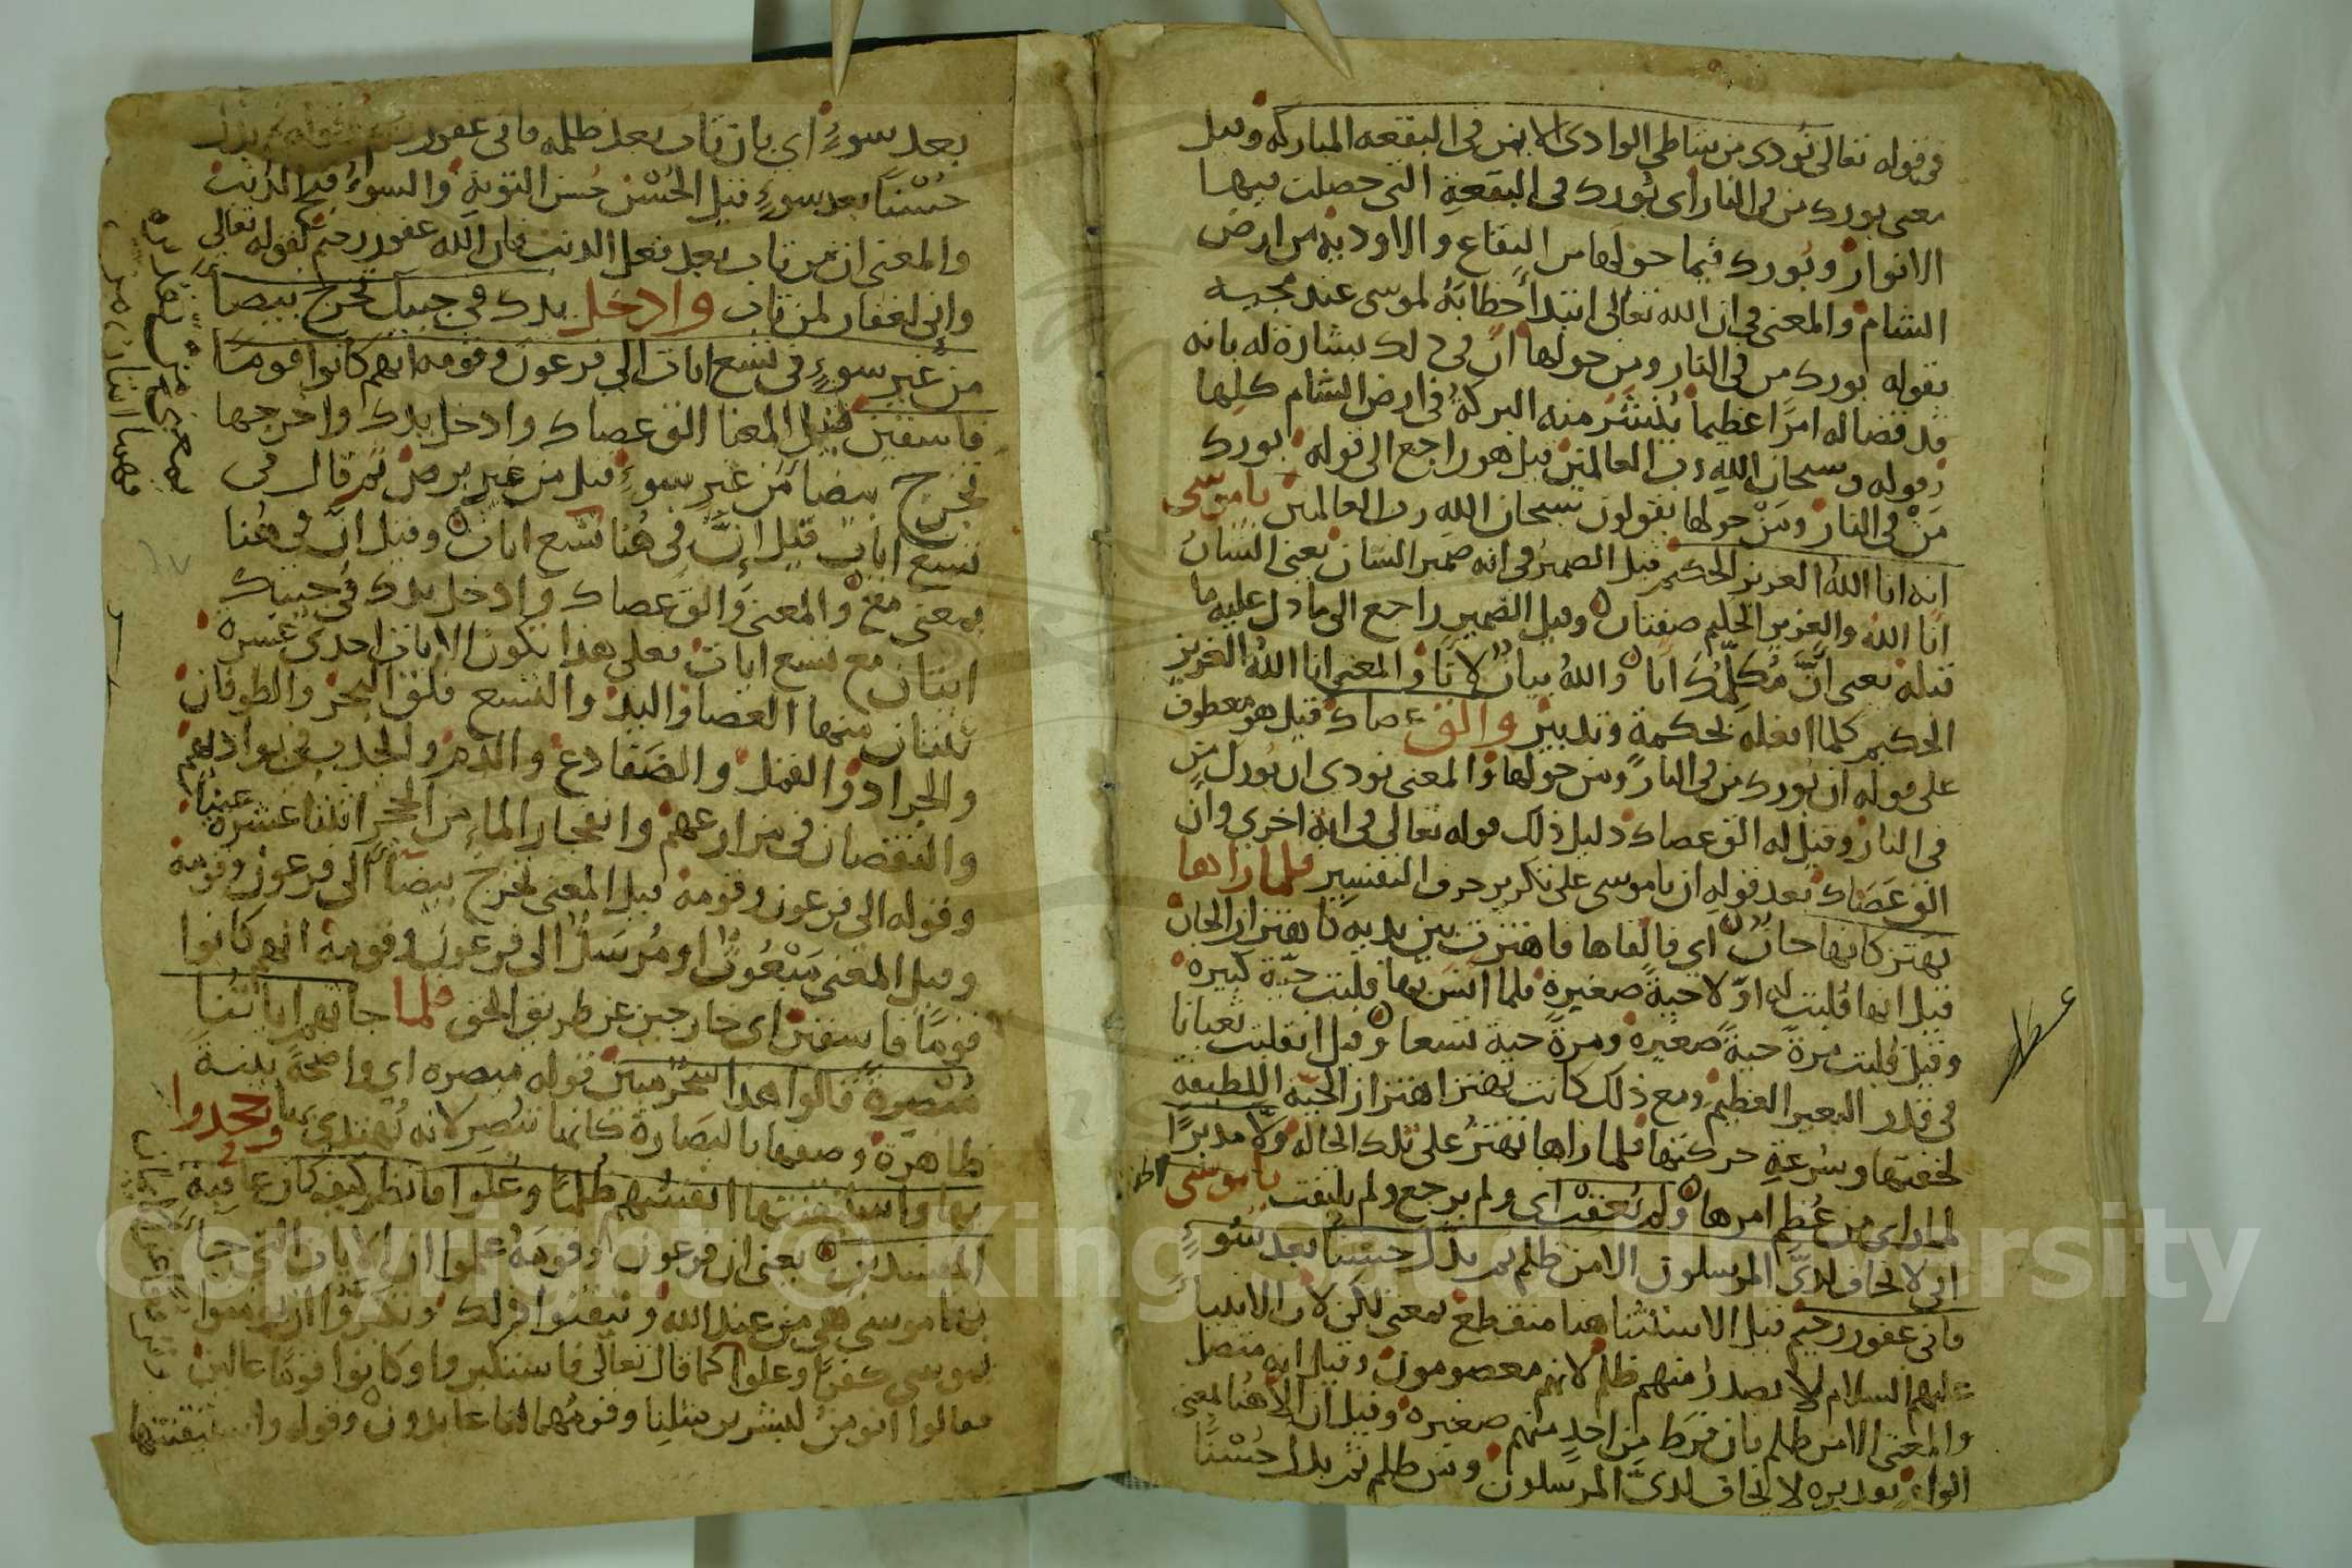 في قوله تعالى نودى من شاطى الوادى الايمن فى البقعه المباركه وقيل
معنى بورك من فى النار اى بورك فى البقعة التى حصلت فيها
الانوار وبورك فيما حولها من البقاع والاودية من ارض
الشام والمعنى فى ان الله تعالى ابتدأ خطابه لموسى عند مجيه
بقوله بورك من فى النار ومن حولها ان فى ذلك بشارة له بانه
قد قضا له امرا عظيما ينتشر منه البركة فى ارض الشام كلها
وقوله وسبحان الله رب العالمين قيل هو راجع الى قوله بورك
من فى النار ومن حولها يقولون سبحان الله رب العالمين ياموسى
انه انا الله العزيز الحكيم قيل الضمير فى انه ضمير الشان يعنى الشان
انا الله والعزيز الحكيم صفتان وقيل الضمير راجع الى ما دل عليه ما
قبله يعنى ان مكلمك انا والله بيان لانا والمعنى انا الله العزيز
الحكيم كلما افعله بحكمة وتدبير والق عصاك قيل هو معطوف
على قوله ان بورك من فى النار ومن حولها والمعنى نودى ان بورك من
فى النار وقيل له الق عصاك دليل ذلك قوله تعالى فى اية اخرى وان
الق عصاك بعد قوله ان ياموسى على تكرير حرف التفسير فلما راها
تهتز كانها جان اى فالقاها فاهتزت بين يديه كاهتزاز الجان
قيل انها قلبت له اولا حية صغيرة فلما انس بها قلبت حية كبيره
وقيل قلبت مرة حية صغيره ومرة حية تسعا وقيل انقلبت ثعبانا
فى قدر البعير العظيم ومع ذلك كانت تهتز اهتزاز الحية اللطيفة
لخفتها وسرعة حركتها فلما راها تهتز على تلك الحالة ولا مدبرا
لما راى من عظم امرها ولم يعقب اى ولم يرجع ولم يلتفت ياموسى لا
انى لا يخاف لدى المرسلون الا من ظلم ثم بدل حسنا بعد سوء
فانى غفور رحيم قيل الاستثنا هنا منقطع بمعنى لكن لان الانبياء
عليهم السلام لا يصدر منهم ظلم لانهم معصومون وقيل انه متصل
والمعنى الا من ظلم بان فرط من احد منهم صغيره وقيل ان الا هنا بمعنى
الواو تقديره لا يخاف لدى المرسلون ومن ظلم ثم بدل حسنا
بعد سوء اى بان تاب بعد ظلمه فانى غفور رحيم قوله ثم بدل
حسنا بعد سوء قيل الحسن حسن التوبة والسوء قبح الذنب
والمعنى ان من تاب بعد فعل الذنب فان الله غفور رحيم كقوله تعالى
وانى لغفار لمن تاب وادخل يدك فى جيبك تخرج بيضا
من غير سوء فى تسع ايات الى فرعون وقومه انهم كانوا قوما
فاسقين قيل المعنا الق عصاك وادخل يدك واخرجها
تخرج بيضا من غير سوء قيل من غير برص ثم قال فى
تسع ايات قيل ان فى هنا تسع ايات وقيل ان فى هنا
بمعنى مع والمعنى والق عصاك وادخل يدك فى جيبك
ايتان مع تسع ايات فعلى هذا يكون الايات احدى عشره
ثنتان منها العصا واليد والتسع فلق البحر والطوفان
والجراد والقمل والضفادع والدم والجدب فى بواديهم
والنقصان فى مزارعهم وانفجار الماء من الحجر اثنتا عشرة عينا
وقوله الى فرعون وقومه قيل المعنى تخرج بيضا الى فرعون وقومه
وقيل المعنى مبعوثا او مرسلا الى فرعون وقومه انهم كانوا
قوما فاسقين اى خارجين عن طريق الحق فلما جاتهم اياتنا
مبصرة قالوا هذا سحر مبين قوله مبصره اى واضحة بينة
ظاهرة وصفها بالبصارة كانها تبصر لانه يهتدى بها وجحدوا
بها واستيقنتها انفسهم ظلما وعلوا فانظر كيف كان عاقبة
المفسدين يعنى ان فرعون وقومه علموا ان الايات التى جاء
بها موسى هى من عند الله وتيقنوا ذلك وتكبروا ان يومنوا
بموسى كفرا وعلوا كما قال تعالى فاستكبروا وكانوا قوما عالين
فقالوا انومن لبشرين مثلنا وقومهما لنا عابدون وقوله واستيقنتها